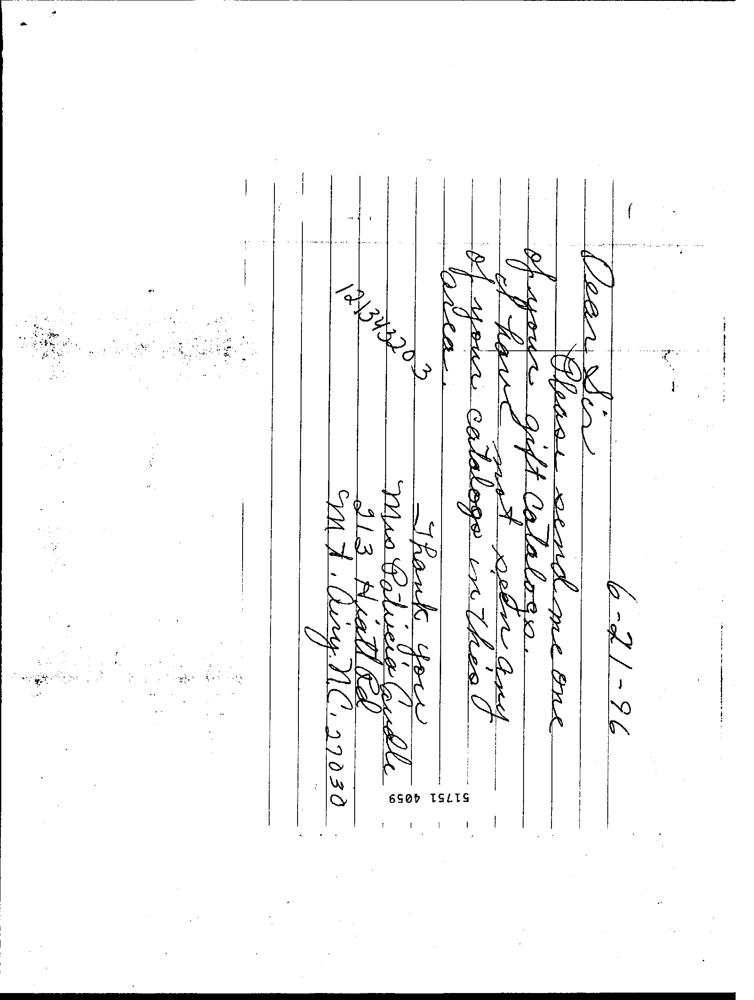 6-21-96
Dear Sir
Please send me one
of your gift catalogs.
I have not seen any
of your catalogs in this
area.
Thank you
Mrs Patricia Caudle
213 Hiatt Rd
Mt. Airy NC. 27030
1213433203
51751 4059